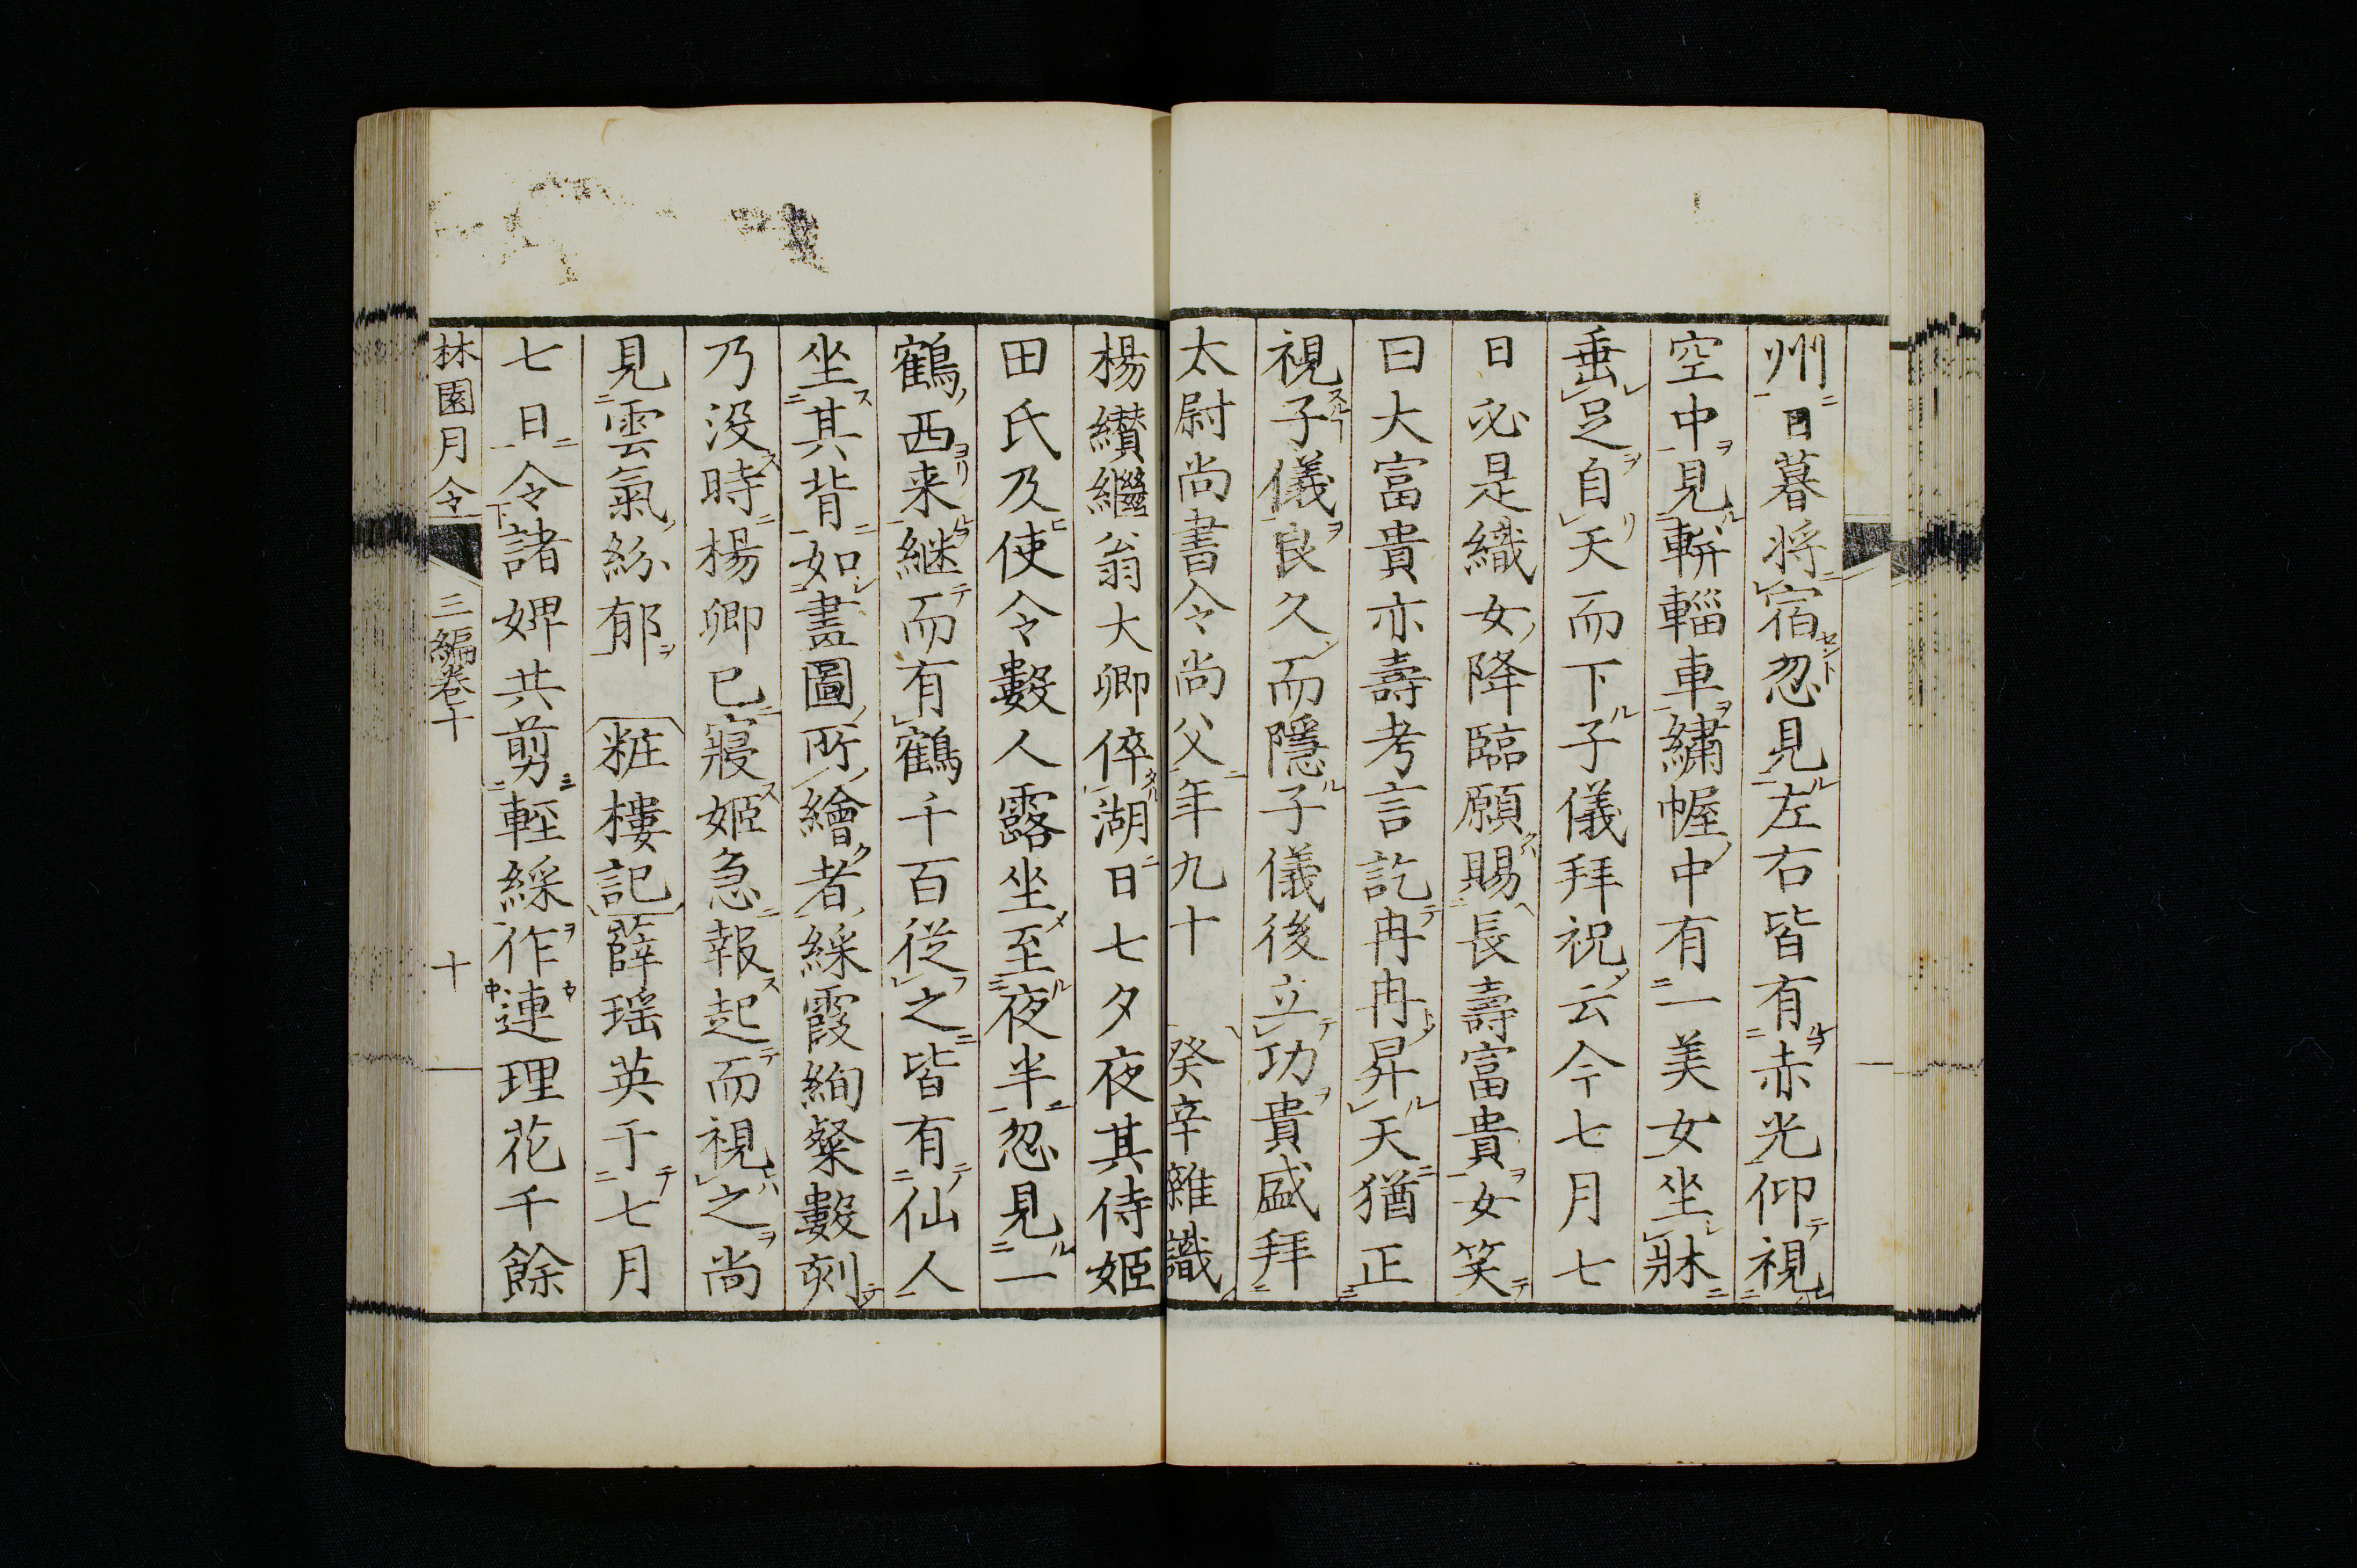 州日暮将宿忽見左右皆有赤光仰視
空中見輧輜車繡幄中有一美女坐牀
垂足自天而下子儀拜祝云今七月七
日必是織女降臨願賜長壽富貴女笑
曰大富貴亦壽考言訖冉冉昇天猶正
視子儀良久而隱子儀後立功貴盛拜
太尉尚書令尚父年九十　癸辛雜識
楊纉繼翁大卿倅湖日七夕夜其侍姬
田氏及使令數人露坐至夜半忽見一
鶴西来継而有鶴千百從之皆有仙人
坐其背如畫圖所繪者綵霞絢粲數刻
乃没時楊卿已寢姬急報起而視之尚
見雲氣紛郁　粧樓記　薛瑶英于七月
七日令諸婢共剪輕綵作連理花千餘
林園月令　三編卷十　十